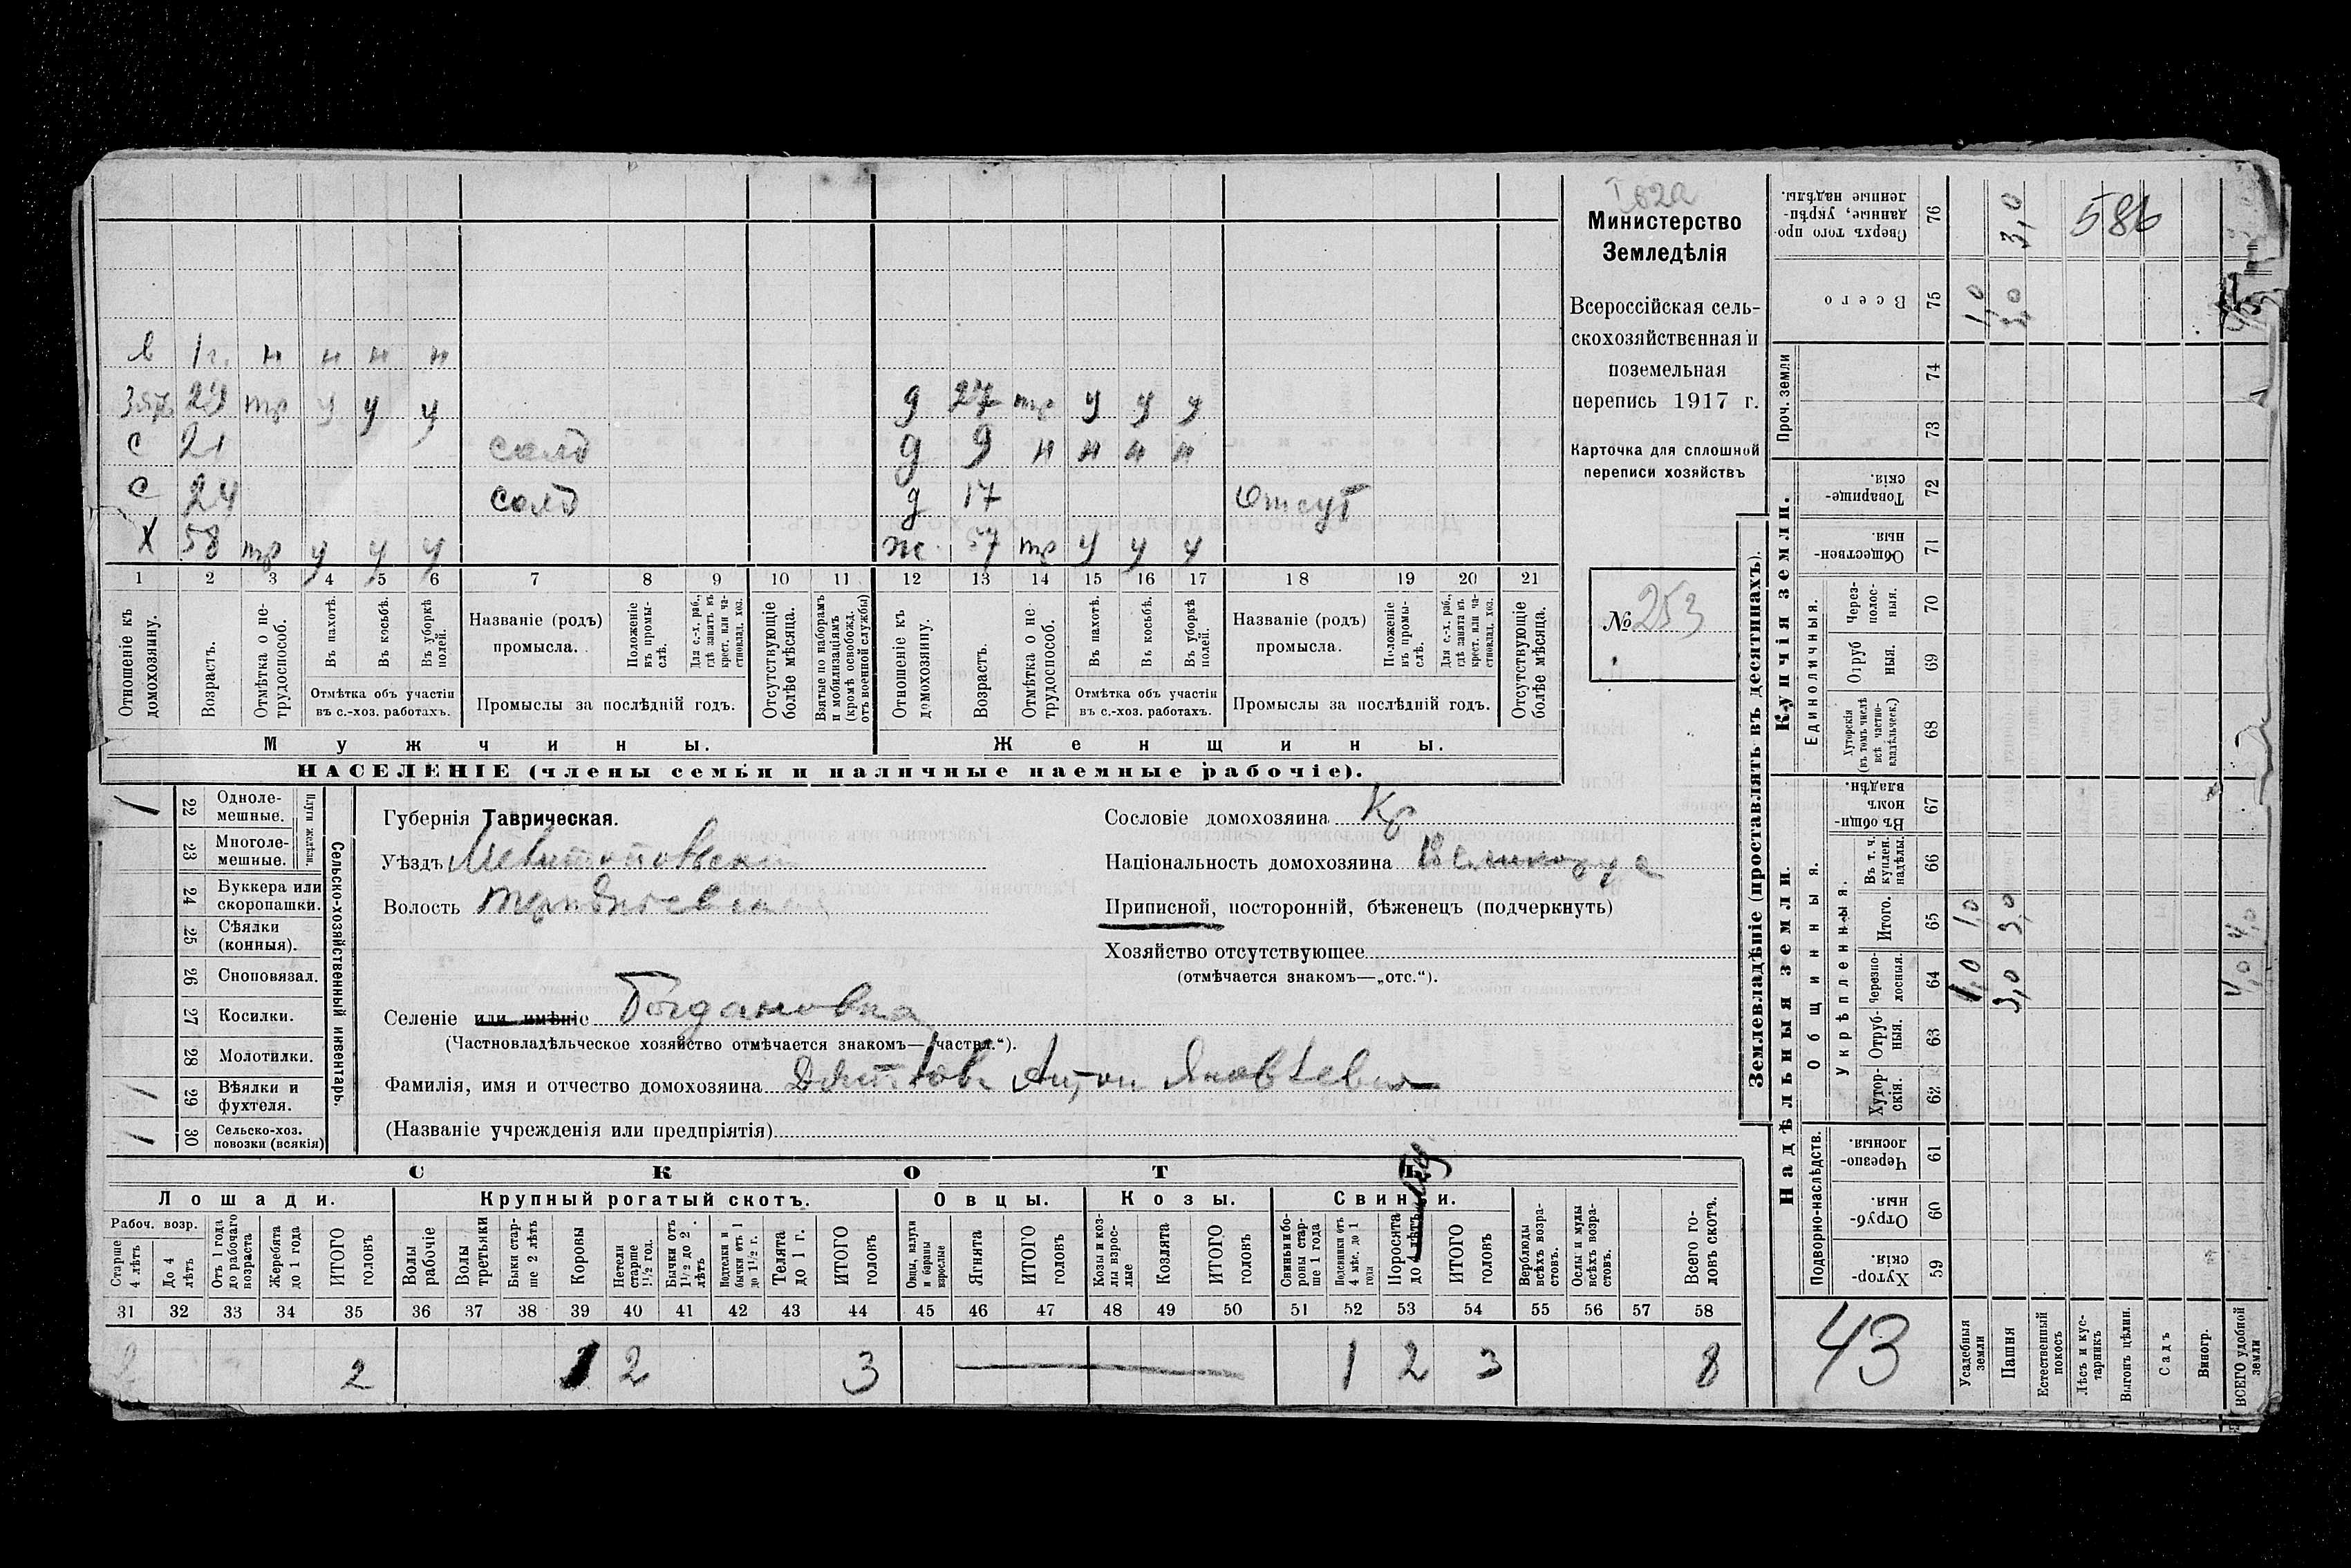 Министерство
Земледѣлія
Всероссійская сель-
скохозяйственная и
поземельная
перепись 1917 г.
Карточка для сплошной
переписи хозяйствъ
№ 253
в 1 г. н н н н
Зять 29 тр у у у д 27 тр у у у
с 21 солд д 9 н н н н
с 24 солд д 17 Отсут
Х 58 тр у у у ж. 57 тр у у у
1 2 3 4 5 6 7 8 9 10 11 12 13 14 15 16 17 18 19 20 21
Отношеніе къ домохозяину.
Возрастъ.
Отмѣтка о не-трудоспособ.
Въ пахотѣ.
Въ косьбѣ.
Въ уборкѣ полей.
Отмѣтка объ участіи
въ с.-хоз. работахъ.
Названіе (родъ)
промысла.
Положеніе въ промы-слѣ.
Для с.-х. раб., гдѣ занятъ въ крест. или ча-стновлад. хоз.
Промыслы за послѣдній годъ.
Отсутствующіе болѣе мѣсяца.
Взятые по наборамъ и мобилизаціямъ (кромѣ освобожд. отъ военной службы)
Отношеніе къ домохозяину.
Возрастъ.
Отмѣтка о не трудоспособ.
Въ пахотѣ.
Въ косьбѣ.
Въ уборкѣ полей.
Отмѣтка объ участіи
въ с.-хоз. работахъ.
Названіе (родъ)
промысла.
Положеніе въ промы-слѣ.
Для с.-х. раб., гдѣ занята въ крест. или ча-стновлад. хоз.
Промыслы за послѣдній годъ.
Отсутствующіе болѣе мѣсяца.
Мужчины. Женщины.
НАСЕЛЕНІЕ (члены семьи и наличные наемные рабочіе).
1 22 Одноле-мешные.
23 Многоле-мешные.
Плуги желѣзн.
24 Буккера или скоропашки.
25 Сѣялки (конныя).
26 Сноповязал.
27 Косилки.
28 Молотилки.
1 29 Вѣялки и фухтеля.
1 30 Сельско-хоз. повозки (всякія)
Сельско-хозяйственный инвентарь.
Губернія Таврическая.
Уѣздъ Мелитопольскій
Волость
Сословіе домохозяина Кр
Національность домохозяина Великорус
Приписной, посторонній, бѣженецъ (подчеркнуть)
Хозяйство отсутствующее
(отмѣчается знакомъ—„отс.“).
Селеніе или имѣніе Богдановка
(Частновладѣльческое хозяйство отмѣчается знакомъ—„частвл.“).
Фамилія, имя и отчество домохозяина Антон Яковлевич
(Названіе учрежденія или предпріятія)
СКОТЪ
Лошади. Крупный рогатый скотъ. Овцы. Козы. Свиньи.
Рабоч. возр.
Старше 4 лѣтъ
До 4 лѣтъ
Отъ 1 года до рабочаго возраста
Жеребята до 1 года
ИТОГО головъ
Волы рабочіе
Волы третьяки
Быки стар-ше 2 лѣтъ
Коровы
Нетели старше 1½ год.
Бычки отъ 1½ до 2 лѣтъ
Подтелки и бычки отъ 1 до 1½ г.
Телята до 1 г.
ИТОГО головъ
Овцы, валухи и бараны взрослые
Ягнята
ИТОГО головъ
Козы и коз-лы взрос-лые
Козлята
ИТОГО головъ
Свиньи и бо-ровы стар-ше 1 года
Подсвинки отъ 4 мѣс. до 1 года
Поросята до 4 лѣтъ
ИТОГО головъ
Верблюды всѣхъ возра-стовъ.
Ослы и мулы всѣхъ возра-стовъ.
Всего го-ловъ скота.
31 32 33 34 35 36 37 38 39 40 41 42 43 44 45 46 47 48 49 50 51 52 53 54 55 56 57 58
2 2 3 1 2 3 8
Землевладѣніе (проставлять въ десятинахъ).
Купчія земли.
Надѣльныя земли.
Сверхъ того про-данные, укрѣп-ленные надѣлы. 76 3,0
586
Всего 75 1,0 3,0
Проч. земли
74
73
Товарище-скія. 72
Обществен-ныя. 71
Единоличныя.
Через-полос-ныя. 70
Отруб ныя. 69
Хуторскія (въ томъ числѣ всѣ частно-владѣльческ.) 68
Общинныя.
Въ общи-номъ владѣн. 67
Укрѣпленныя.
Въ т. ч. куплен. надѣлы. 66
Итого. 65 1,0 3,0 4,0
Черезпо-лосныя. 64 1,0 3,0 4,0
Отруб-ныя. 63
Хутор-скія. 62
Подворно-наслѣдств.
Черезпо-лосныя. 61
Отруб-ныя. 60
Хутор-скія. 59
43
Усадебныя земли
Пашня
Естественный покосъ
Лѣсъ и кус-тарникъ
Выгонъ цѣлин.
Садъ
Виногр.
ВСЕГО удобной земли